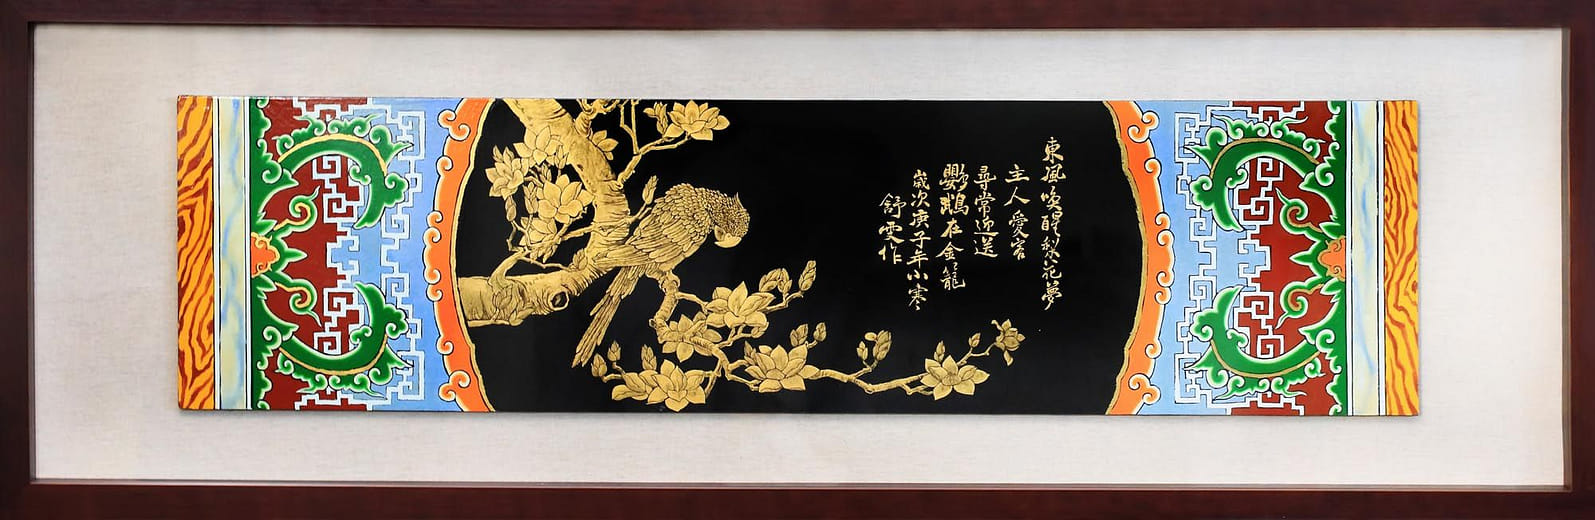 東風喚醒梨花夢
主人愛客
尋常迎送
鸚鵡在金籠
歲次庚子年小寒
舒雯作